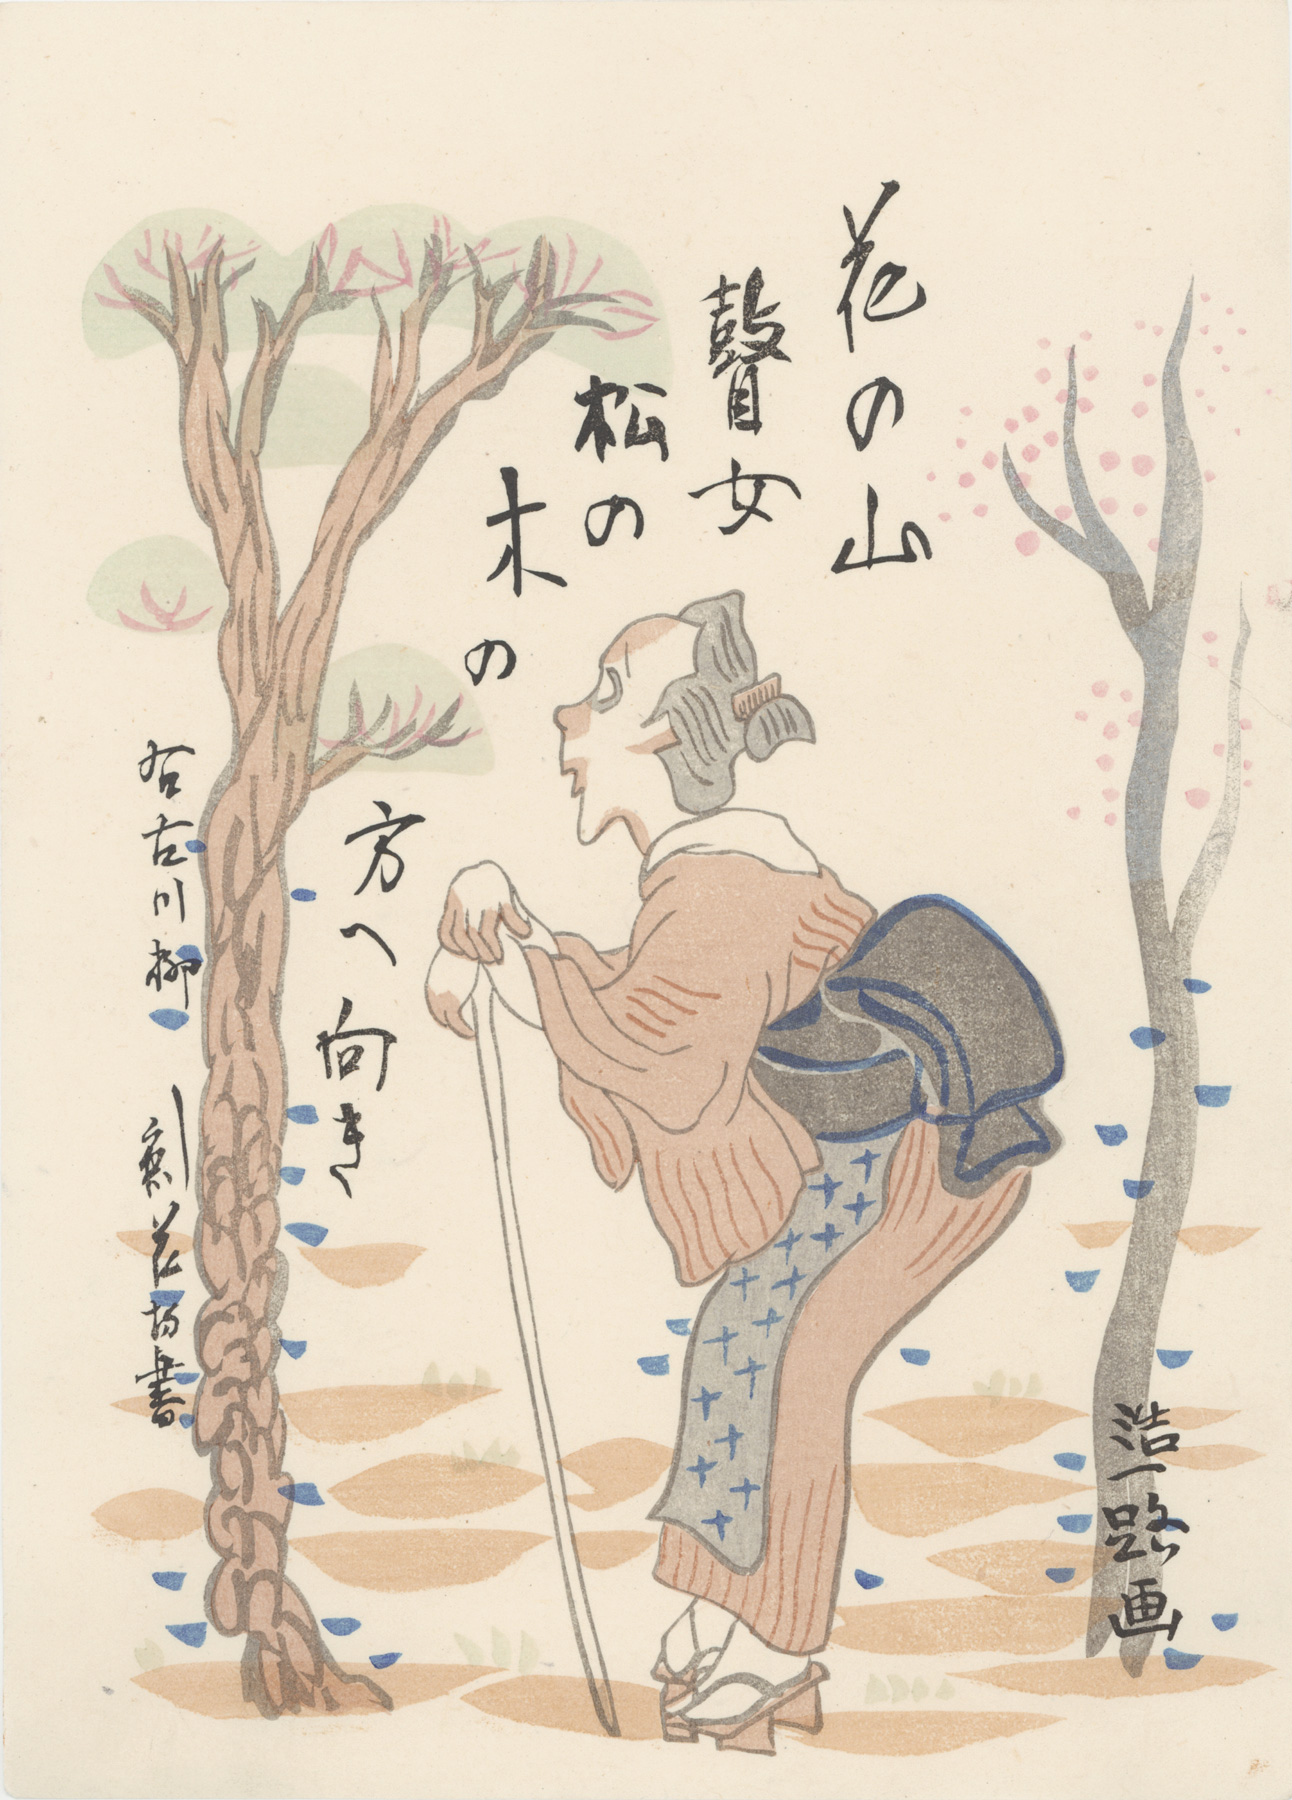 花の山
瞽女
松の
木の
方へ
向き
右古川柳
剣花坊書
浩一路画